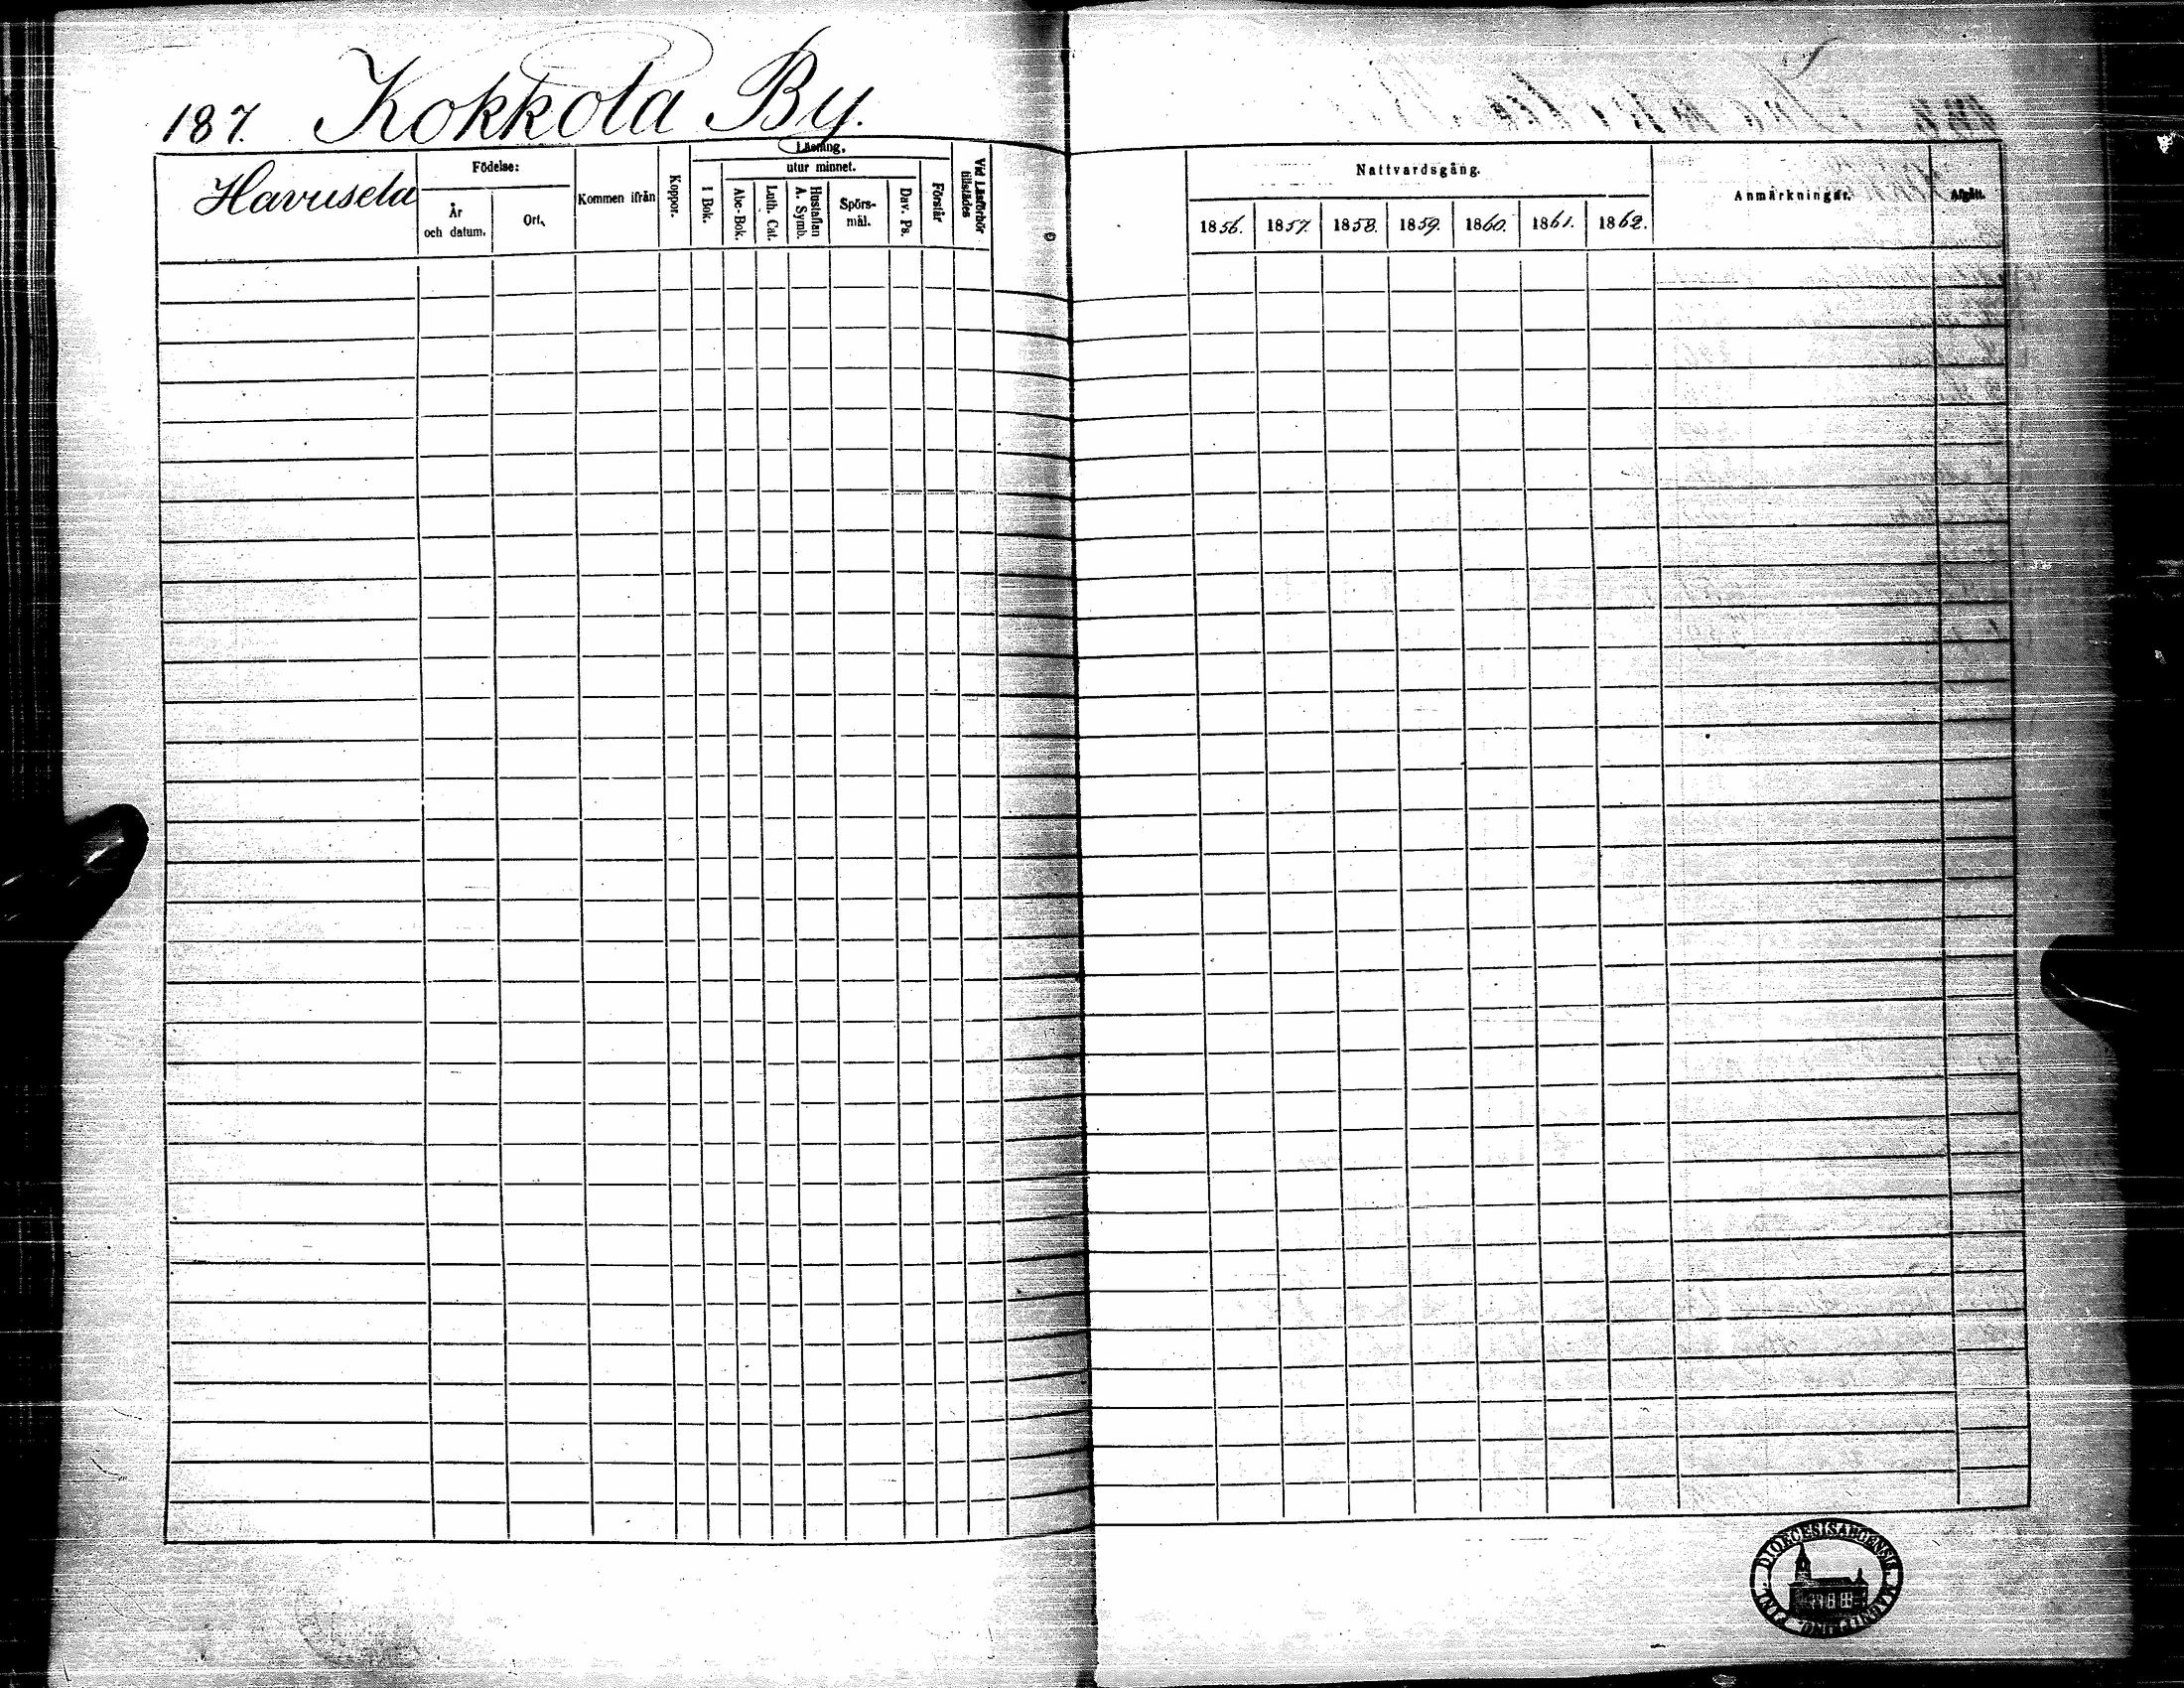 187. Kokkola By.
Havusela
Födelse:
År och datum.
Ort.
Kommen ifrån
Koppor.
Läsning,
utur minnet.
I Bok.
Abc-Bok.
Luth. Cat.
Hustaflan A. Symb.
Spörs-mål.
Dav. Ps.
Förstår
Vid Läsförhör tillstädes
Nattvardsgång.
1856. 1857. 1858. 1859. 1860. 1861. 1862.
Anmärkningar.
Afgått.